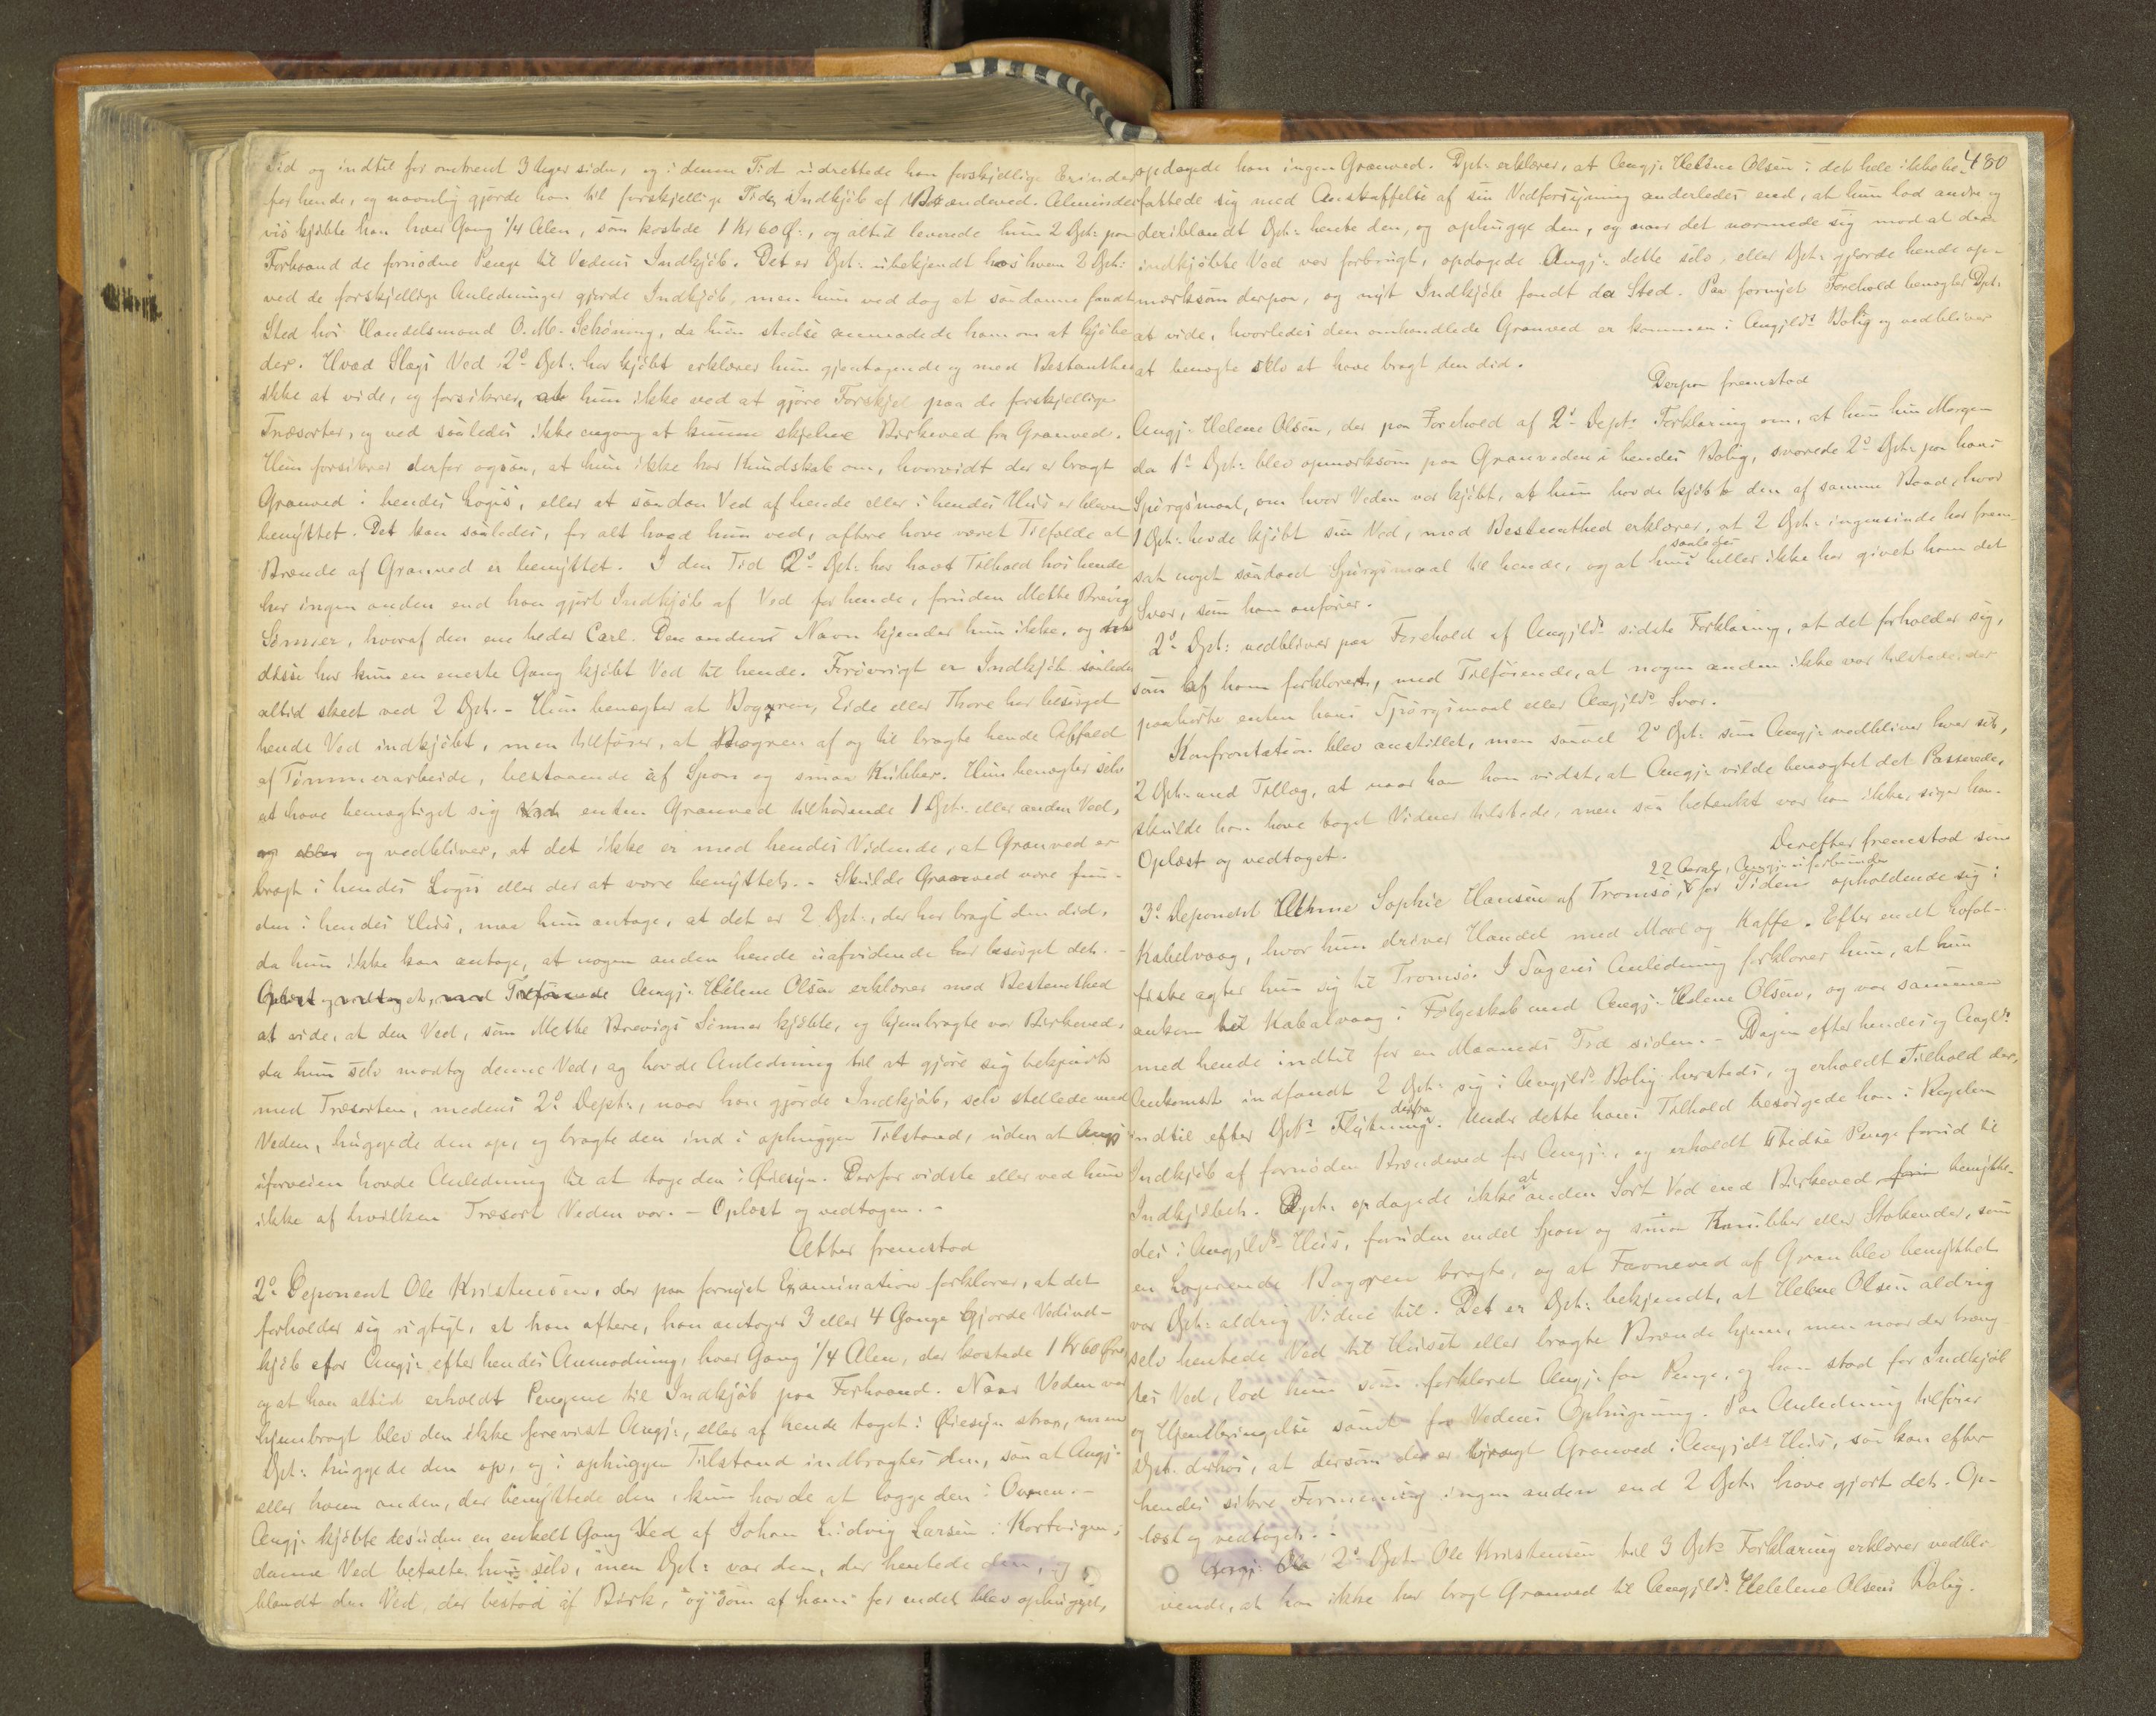 Tid og indtil for omtrent 3 Uger siden, og i denne Tid udrettede han forskjellige Erinder
for hende, og navnlig gjorde han til forskjellige Tider Indkjøb af Brændeved. Alminde
vis kjøbte han hver Gang 1/4 Alen, som kostede 1 Kr 60 Ø:, og altid leverede hun 2 Dpt: paa
Forhaand de fornødne Penge til Vedens Indkjøb. Det er Dpt: ubekjendt hos hvem 2 Dpt:
ved de forskjellige Anledninger gjorde Indkjøb, men hun ved dog at saadanne fandt
Sted hos Handelsmand O. M. Schøning, da hun stedse anmodede ham om at kjøbe
der. Hvad Slags Ved 2den Dpt: har kjøbt erklærer hun gjentagende og med Bestemthed
ikke at vide, og forsikrer, at hun ikke ved at gjøre Forskjel paa de forskjellige
Træsorter, og ved saaledes ikke engang at kunne skjelne Birkeved fra Granved.
Hun forsikrer derfor ogsaa, at hun ikke har Kundskab om, hvorvidt der er bragt
Granved i hendes Logis, eller at saadan Ved af hende eller i hendes Hus er bleven
benyttet. Det kan saaledes, for alt hvad hun ved, oftere have været Tilfælde at
Brænde af Granved er benyttet. I den Tid 2den Dpt: har havt Tilhold hos hende
har ingen anden end han gjort Indkjøb af Ved for hende, foruden Mette Brevig
Sønner, hvoraf den ene heder Carl. Den andens Navn kjender hun ikke, og
disse har kun en eneste Gang kjøbt Ved til hende. Forøvrigt er Indkjøb saaledes
altid skeet ved 2 Dpt. - Hun benægter at Bagøren, Eide eller Thore har besørget
hende Ved indkjøbt, men tilføier, at Bagøren af og til bragte hende Affald
af Tømmerarbeide, bestaaende af Spon og smaa Kubber. Hun benægter selv
at have bemægtiget sig Ved enten Granved tilhørende 1 Dpt: eller anden Ved,
og vedbliver, at det ikke er med hendes Vidende, at Granved er
bragt i hendes Logis eller der at være benyttet. - Skulde Granved være fun-
den i hendes Hus, maa hun antage, at det er 2 Dpt:, der har bragt den did,
da hun ikke kan antage, at nogen anden hende uafvidende har besørget det. -
Oplæst og vedtaget, med Tilføiende Angj: Helene Olsen erklærer med Bestemthed
at vide, at den Ved, som Mette Brevigs Sønner kjøbte, og hjembragte var Birkeved,
da hun selv modtog denne Ved, og havde Anledning til at gjøre sig bekjendt
med Træsorten, medens 2den Dept:, naar han gjorde Indkjøb, selv stellede med
Veden, huggede den op, og bragte den ind i ophuggen Tilstand, uden at Angj:
iforveien havde Anledning til at tage den i Øiesyn. Derfor vidste eller ved hun
ikke af hvilken Træsort Veden var. - Oplæst og vedtagen. -
Atter fremstod
2den Deponent Ole Kristensen, der paa fornyet Examination forklarer, at det
forholder sig rigtigt, at han oftere, han antager 3 eller 4 Gange gjorde Vedind-
kjøb for Angj: efter hendes Anmodning, hver Gang 1/4 Alen, der kostede 1 Kr 60 Øre,
og at han altid erholdt Pengene til Indkjøb paa Forhaand. Naar Veden var
hjembragt blev den ikke forevist Angj:, eller af hende taget i Øiesyn strax, men
Dpt: huggede den op, og i ophuggen Tilstand indbragtes den, saa at Angj:
eller hvem anden, der benyttede den, kun havde at lægge den i Ovnen. -
Angj: kjøbte desuden en enkelt Gang Ved af Johan Ludvig Larsen i Kortvigen;
denne Ved betalte hun selv, men Dpt: var den, der hentede den, og
blandt den Ved, der bestod af Birk, og som af ham for endel blev ophugget,
480
opdagede han ingen Granved. Dpt: erklærer, at Angj: Helene Olsen i det hele ikke be-
fattede sig med Anskaffelse af sin Vedforsyning anderledes end, at hun lod andre og
deriblandt Dpt: hente den, og ophugge den, og naar det nærmede sig mod at den
indkjøbte Ved var forbrugt, opdagede Angj: dette selv, eller Dpt: gjorde hende op-
mærksom derpaa, og nyt Indkjøb fandt da Sted. Paa fornyet Forehold benægter Dpt:
at vide, hvorledes den omhandlede Granved er kommen i Angjlds Bolig og vedbliver
at benægte selv at have bragt den did.
Derpaa fremstod
Angj: Helene Olsen, der paa Forehold af 2den Dept: Forklaring om, at hun hin Morgen
da 1ste Dpt: blev opmærksom paa Granveden i hendes Bolig, svarede 2den Dpt: paa hans
Spørgsmaal, om hvor Veden var kjøbt, at hun havde kjøbt den af samme Baad, hvor
1 Dpt: havde kjøbt sin Ved, med Bestemthed erklærer, at 2 Dpt: ingensinde har frem-
sat noget saadant Spørgsmaal til hende, og at hun saaledes heller ikke har givet ham det
Svar, som han anfører.
2den Dpt: vedbliver paa Forehold af Angjlds sidste Forklaring, at det forholder sig,
som af ham forklaret, med Tilføiende, at nogen anden ikke var tilstede, der
paahørte enten hans Spørgsmaal eller Angjlds Svar.
Konfrontation blev anstillet, men saavel 2den Dpt: som Angj: vedbliver hver sit,
2 Dpt: med Tillæg, at naar han havde vidst, at Angj: vilde benægtet det Passerede,
skulde han have taget Vidner tilstede, men saa betænkt var han ikke, siger han.
Oplæst og vedtaget.
Derefter fremstod som
3die Deponent Anne Sophie Hansen af Tromsø, 22 Aar, Angj: uforbunden for Tiden opholdende sig i
Kabelvaag, hvor hun driver Handel med Mad og Kaffe. Efter endt Lofot-
fiske agter hun sig til Tromsø. I Sagens Anledning forklarer hun, at hun
ankom til Kabelvaag i Følgeskab med Angj: Helene Olsen, og var sammen
med hende indtil for en Maaneds Tid siden. - Dagen efter hendes og Angjlds
Ankomst indfandt 2 Dpt: sig i Angjlds Bolig hersteds, og erholdt Tilhold der,
indtil efter Dpts Flytning derfra. Under dette hans Tilhold besørgede han i Regelen
Indkjøb af fornøden Brændeved for Angj:, og erholdt stedse Penge forud til
Indkjøbet. Dpt: opdagede ikke at anden Sort Ved end Birkeved benytte-
des i Angjlds Hus, foruden endel Spon og smaa Kubber eller Stokender, som
en Logerende Bagøren bragte, og at Favneved af Gran blev benyttet
var Dpt: aldrig Vidne til. Det er Dpt: bekjendt, at Helene Olsen aldrig
selv hentede Ved til Huset eller bragte Brænde hjem, men naar der træng-
tes Ved, lod hun som forklaret Angj: faa Penge, og han stod for Indkjøb
og Hjembringelse samt for Vedens Ophugning. Paa Anledning tilføier
Dpt: derhos, at dersom der er bragt Granved i Angjlds Hus, saa kan efter
hendes sikre Formening ingen anden end 2 Dpt: have gjort det. Op-
læst og vedtaget. -
2den Dpt: Ole Kristensen til 3 Dpts Forklaring erklærer vedbli-
vende, at han ikke har bragt Granved til Angjlds Helene Olsens Bolig.